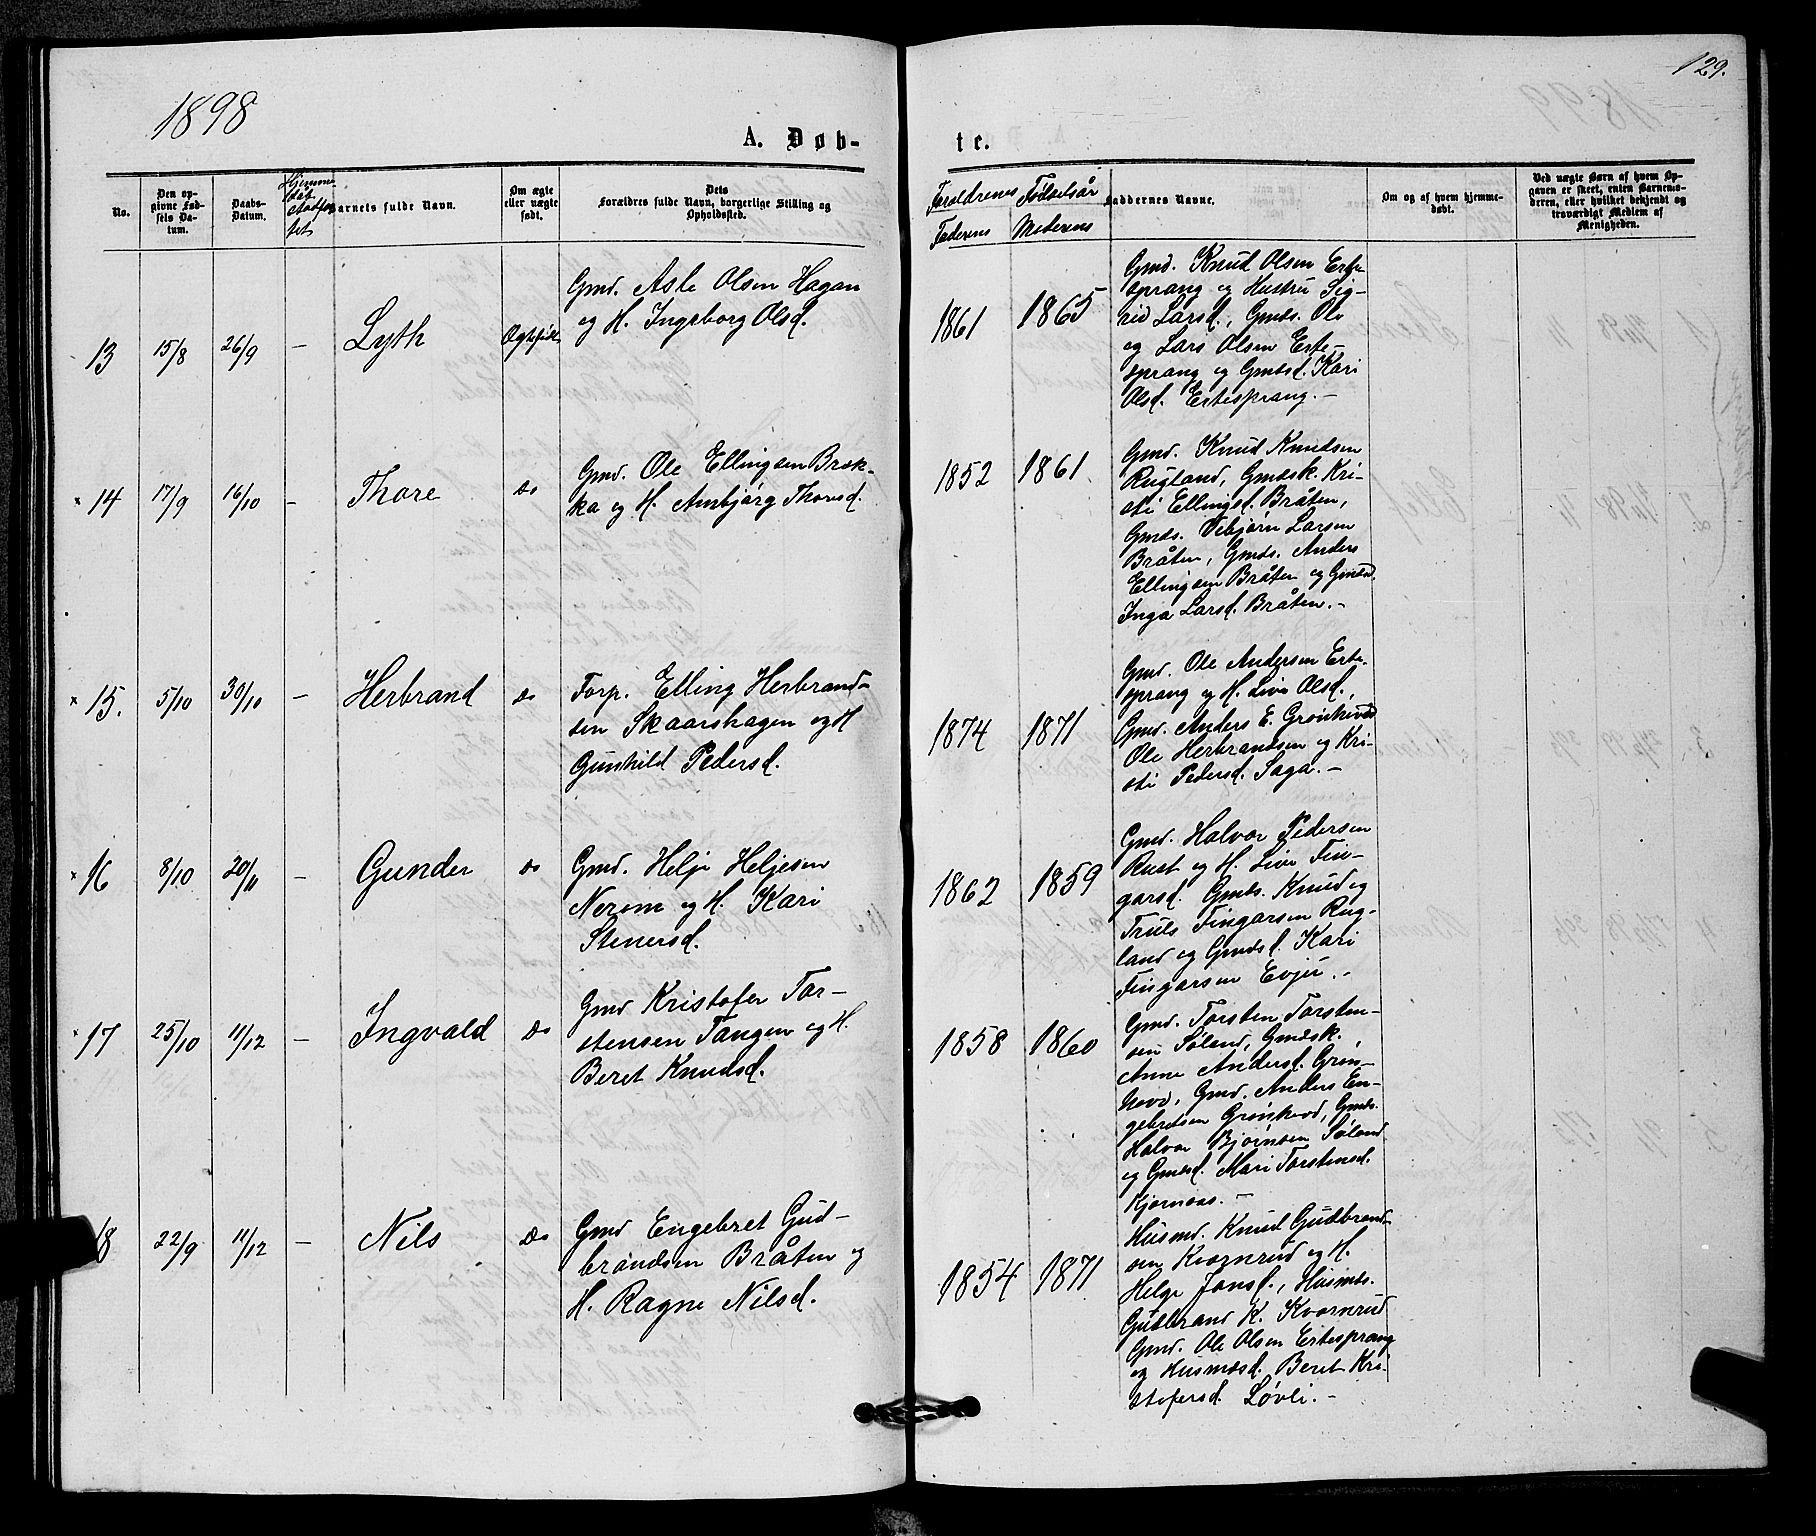 1898
129.
A. Døb-
te.
No.
Den op-
givne Fød-
sels Da-
tum.
Daabs-
Datum.
Hjemme-
daab
stadfæs
tet
Barnets fulde Navn.
Om ægte
eller uægte
født.
Dets
Forældres fulde Navn, borgerlige Stilling og
Opholdssted.
Forældrenes Fødselsår
Faderens Moderens
Faddernes Navne.
Om og af hvem hjemme-
døbt.
Ved uægte Børn af hvem Op-
gaven er skeet, enten Barnemo-
deren, eller hvilket bekjendt og
troværdigt Medlem af
Menigheden.
13 15/8 26/9 – Lyth Ægtefødt
Gmd. Asle Olsen Hagan
og H. Ingeborg Olsd.
1861 1865
Gmd. Knud Olsen Erte-
sprang og Hustru Sig-
rid Larsd., Gmds. Ole
og Lars Olsen Erte-
sprang og Gmdsd. Kari
Olsd. Ertesprang. –
× 14 17/9 16/10 – Thore Do
Gmd. Ole Ellingsen Bræk-
ka og H. Ambjørg Thorsd.
1852 1861
Gmd. Knud Knudsen
Rugland, Gmdsk. Kri-
sti Ellingsd. Bråten,
Gmds. Vebjørn Larsen
Bråten, Gmds. Anders
Ellingsen Bråten og Gmdsd.
Inga Larsd. Bråten. –
× 15. 5/10 30/10 – Herbrand Do
Forp. Elling Herbrand-
sen Skaarshagen og H
Gunhild Pedersd.
1874 1871
Gmd. Ole Andersen Erte-
sprang og H. Live Olsd.,
Gmd. Anders E. Grønhovd
Ole Herbrandsen og Kri-
sti Pedersd. Saga. –
× 16 8/10 20/11 – Gunder Do
Gmd. Helje Heljesen
Nerom og H. Kari
Stenersd.
1862 1859
Gmd. Halvor Pedersen
Rust og H. Live Fin-
garsd. Gmds. Knud og
Truls Fingarsen Rug-
land og Gmdsd. Kari
Fingarsen Evju. –
× 17 25/10 11/12 – Ingvald Do
Gmd Kristofer Tor-
stensen Tangen og H.
Beret Knudsd.
1858 1860
Gmd. Torsten Torsten-
sen Søland, Gmdsk.
Anne Andersd. Grøn-
hovd, Gmd. Anders En-
gebretsen Grønhovd, Gmds.
Halvor Bjørnsen Søland
og Gmdsd. Mari Torstensd.
Kjørnaas. –
18 22/9 11/12 – Nils Do
Gmd Engebret Gud-
brandsen Bråten og
H. Ragne Nilsd.
1854 1871
Husmd. Knud Gudbrand-
sen Kvornrud og H.
Helge Jonsd., Husmds.
Gudbrand K. Kvornrud
Gmd. Ole Olsen Ertesprang
og Husmdsd. Beret Kri-
stofersd. Løvli. –